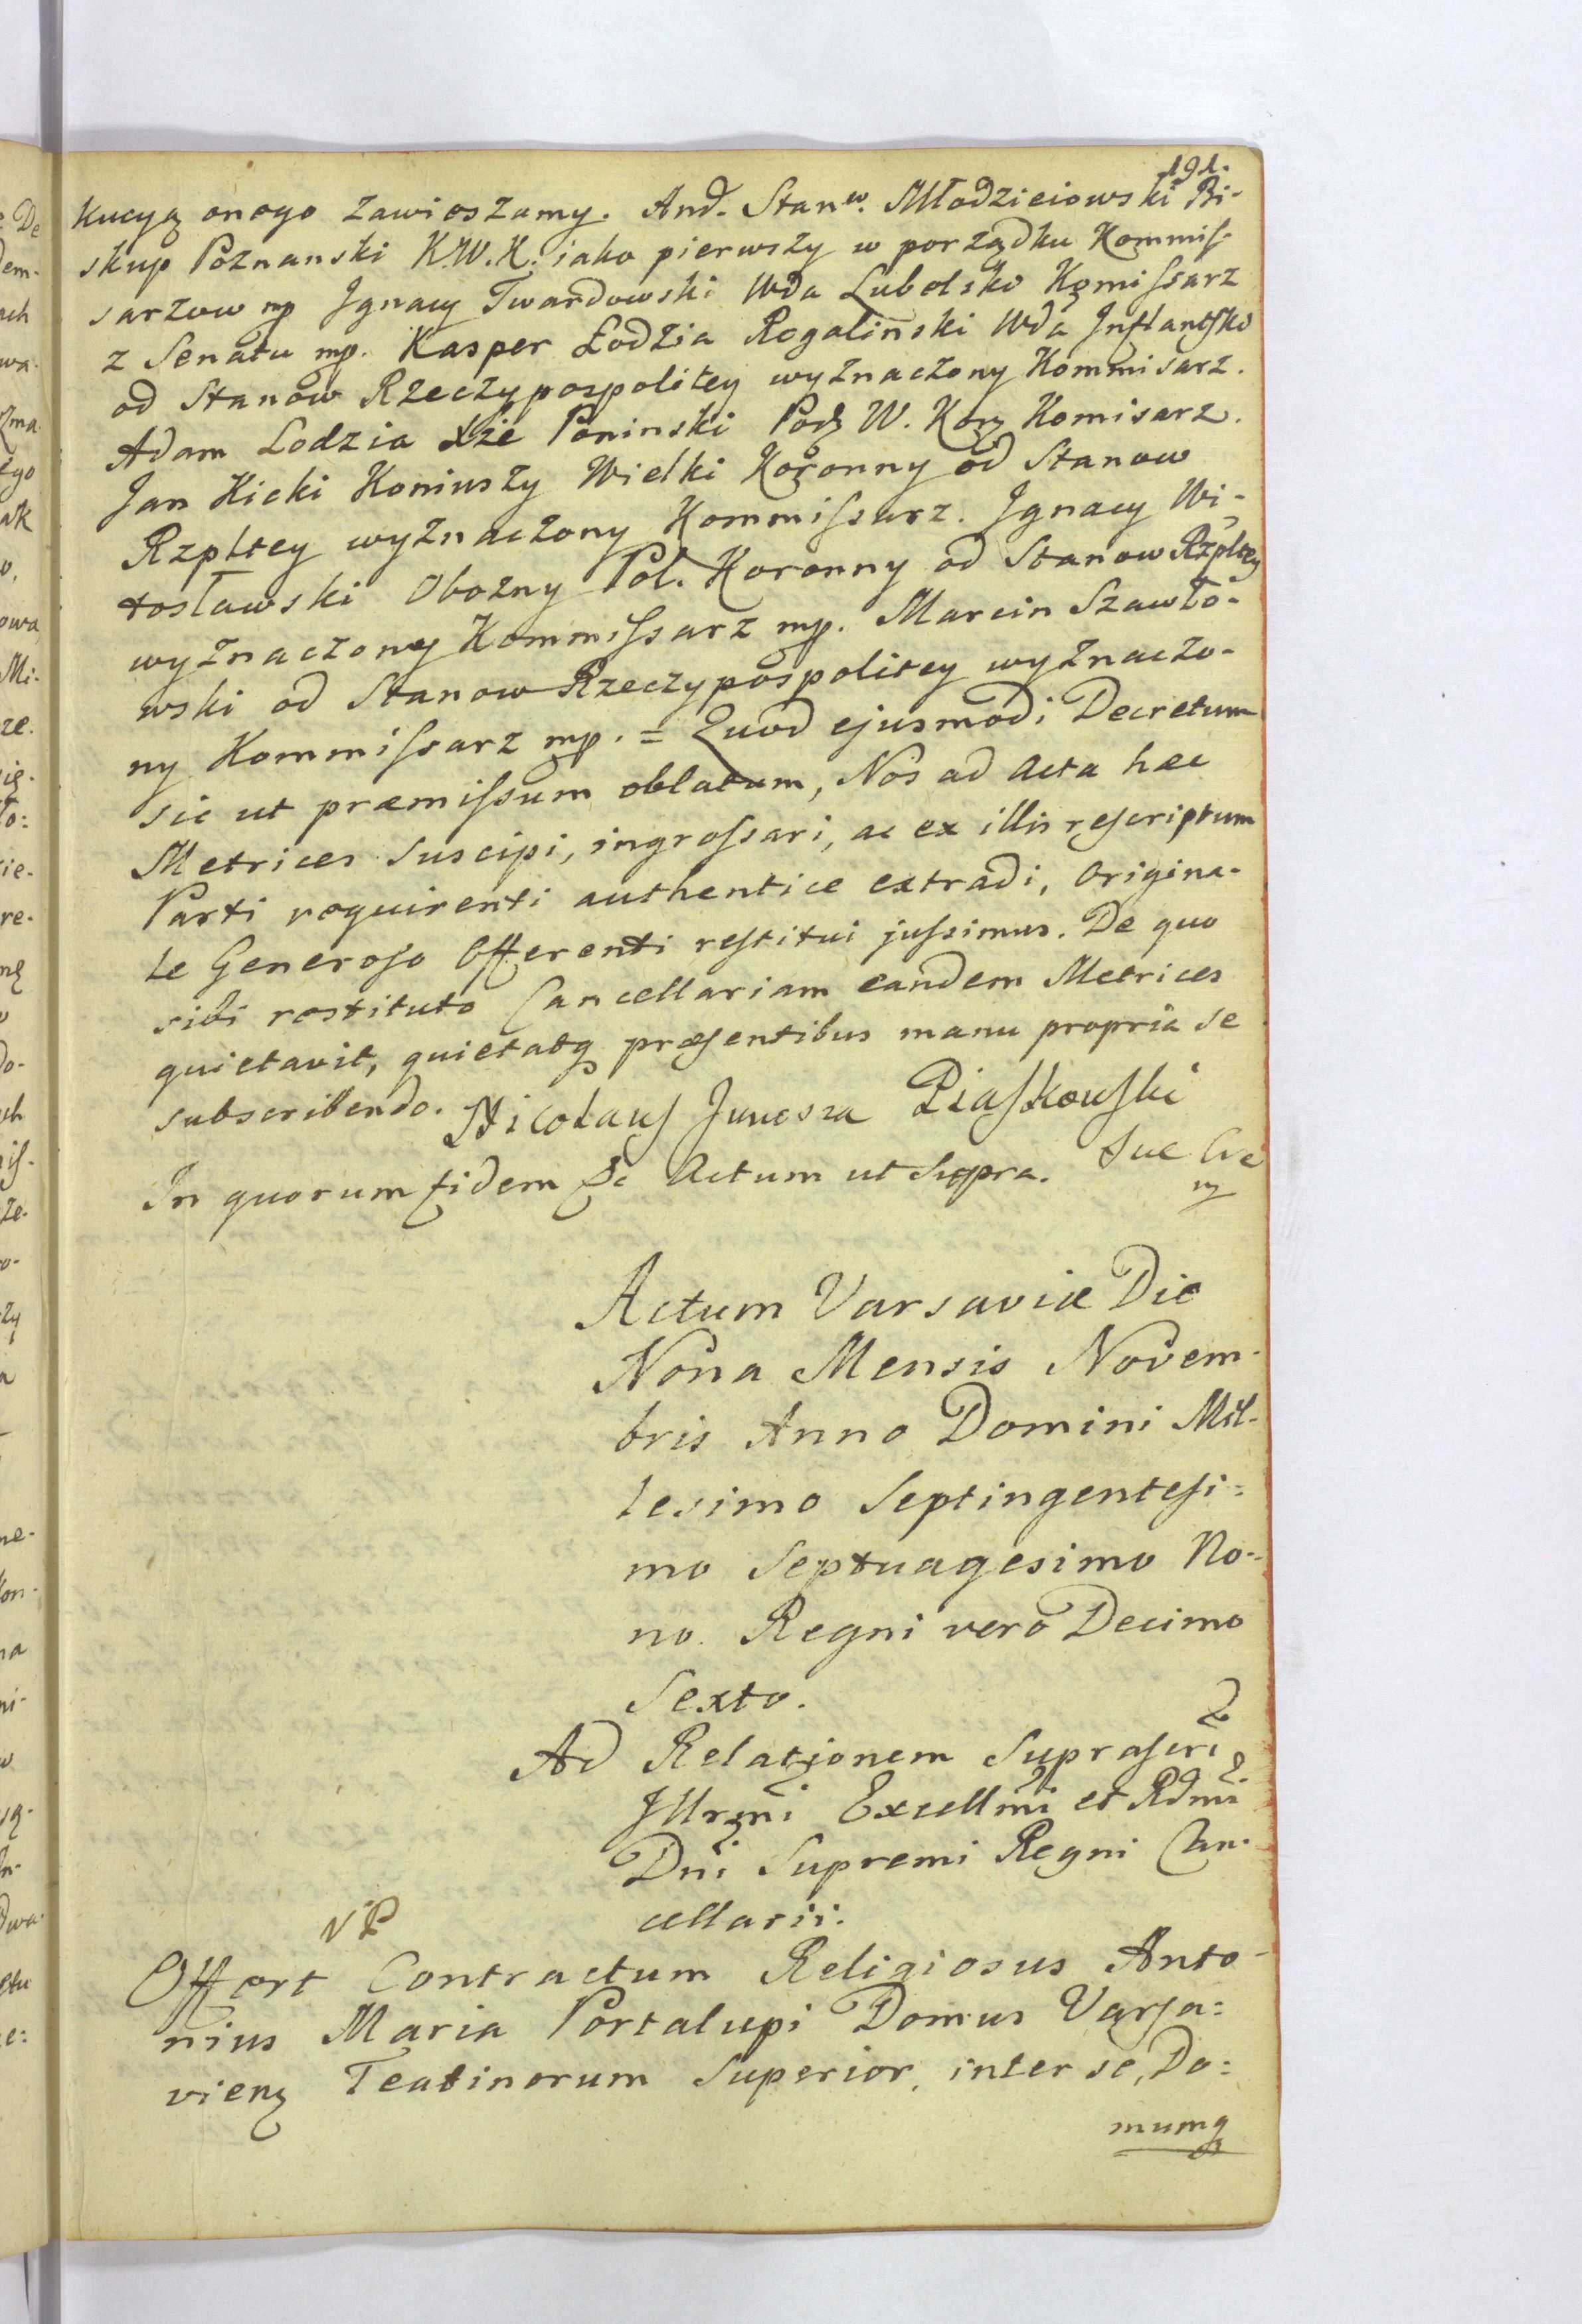 191.
kucyą onego zawieszamy. And. Stanw. Młodzieiowski Bi-
skup Poznanski K.W.K. iako pierwszy w porządku Kommiſ-
sarzow mp Jgnacy Twardowski Wda Lubelski Komiſsarz
z Senatu mp. Kasper Łodzia Rogalinski Wda Jnflantſki
od Stanow Rzeczypospolitey wyznaczony Kommisarz.
Adam Lodzia Xże Poninski Podz W. Korz Komisarz.
Jan Kicki Koniuszy Wielki Koronny od Stanow
Rzpltey wyznaczony Kommiſsarz. Jgnacy Wi-
tosławski Obozny Pol. Koronny od Stanow Rzpltey
wyznaczony Kommiſsarz mp. Marcin Szawło-
wski od Stanow Rzeczypospolitey wyznaczo-
ny Kommiſsarz mp. = Quod ejusmodi Decretum
sic ut præmiſsum oblatum, Nos ad Acta hæc
Metrices suscipi, ingroſsari, ac ex illis reſcriptum
Parti requirenti authentice extradi, Origina-
le Generoſo Offerenti reſtitui juſsimus. De quo
sibi restituto Cancellariam eandem Metrices
quietavit, quietatq præſentibus manu propria se
subscribendo. Nicolauſ Junosza Piaſkowſki
In quorum fidem &c Actum ut Supra.
mp
Actum Varsaviæ Die
Nona Mensis Novem-
bris Anno Domini Mil-
lesimo Septingenteſi=
mo Septuagesimo No-
no. Regni vero Decimo
Sexto.
Ad Relationem Supraſcri
Jllrmi Excellmi et Rdmi
Dni Supremi Regni Can-
cellarii.
NP
Offert Contractum Religiosus Anto-
nius Maria Portalupi Domus Varſa=
vienz Teatinorum Superior, inter se, Do=
mumq